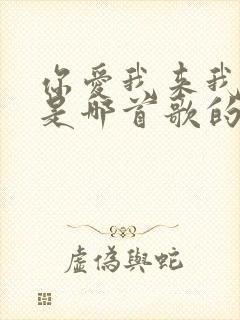 你愛我来我
是哪首歌的
虛偽與蛇